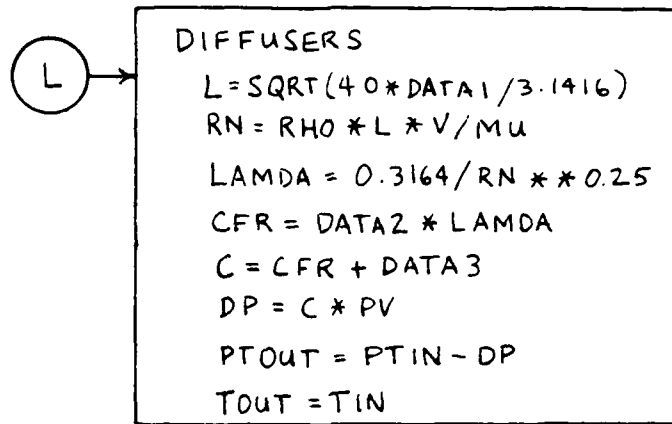 L
DIFFUSERS
L=SQRT(40*DATA1/3.1416)
RN = RHO * L * V/MU
LAMDA = 0.3164/RN * * 0.25
CFR = DATA2 * LAMDA
C = CFR + DATA3
DP = C * PV
PTOUT = PTIN - DP
TOUT = TIN